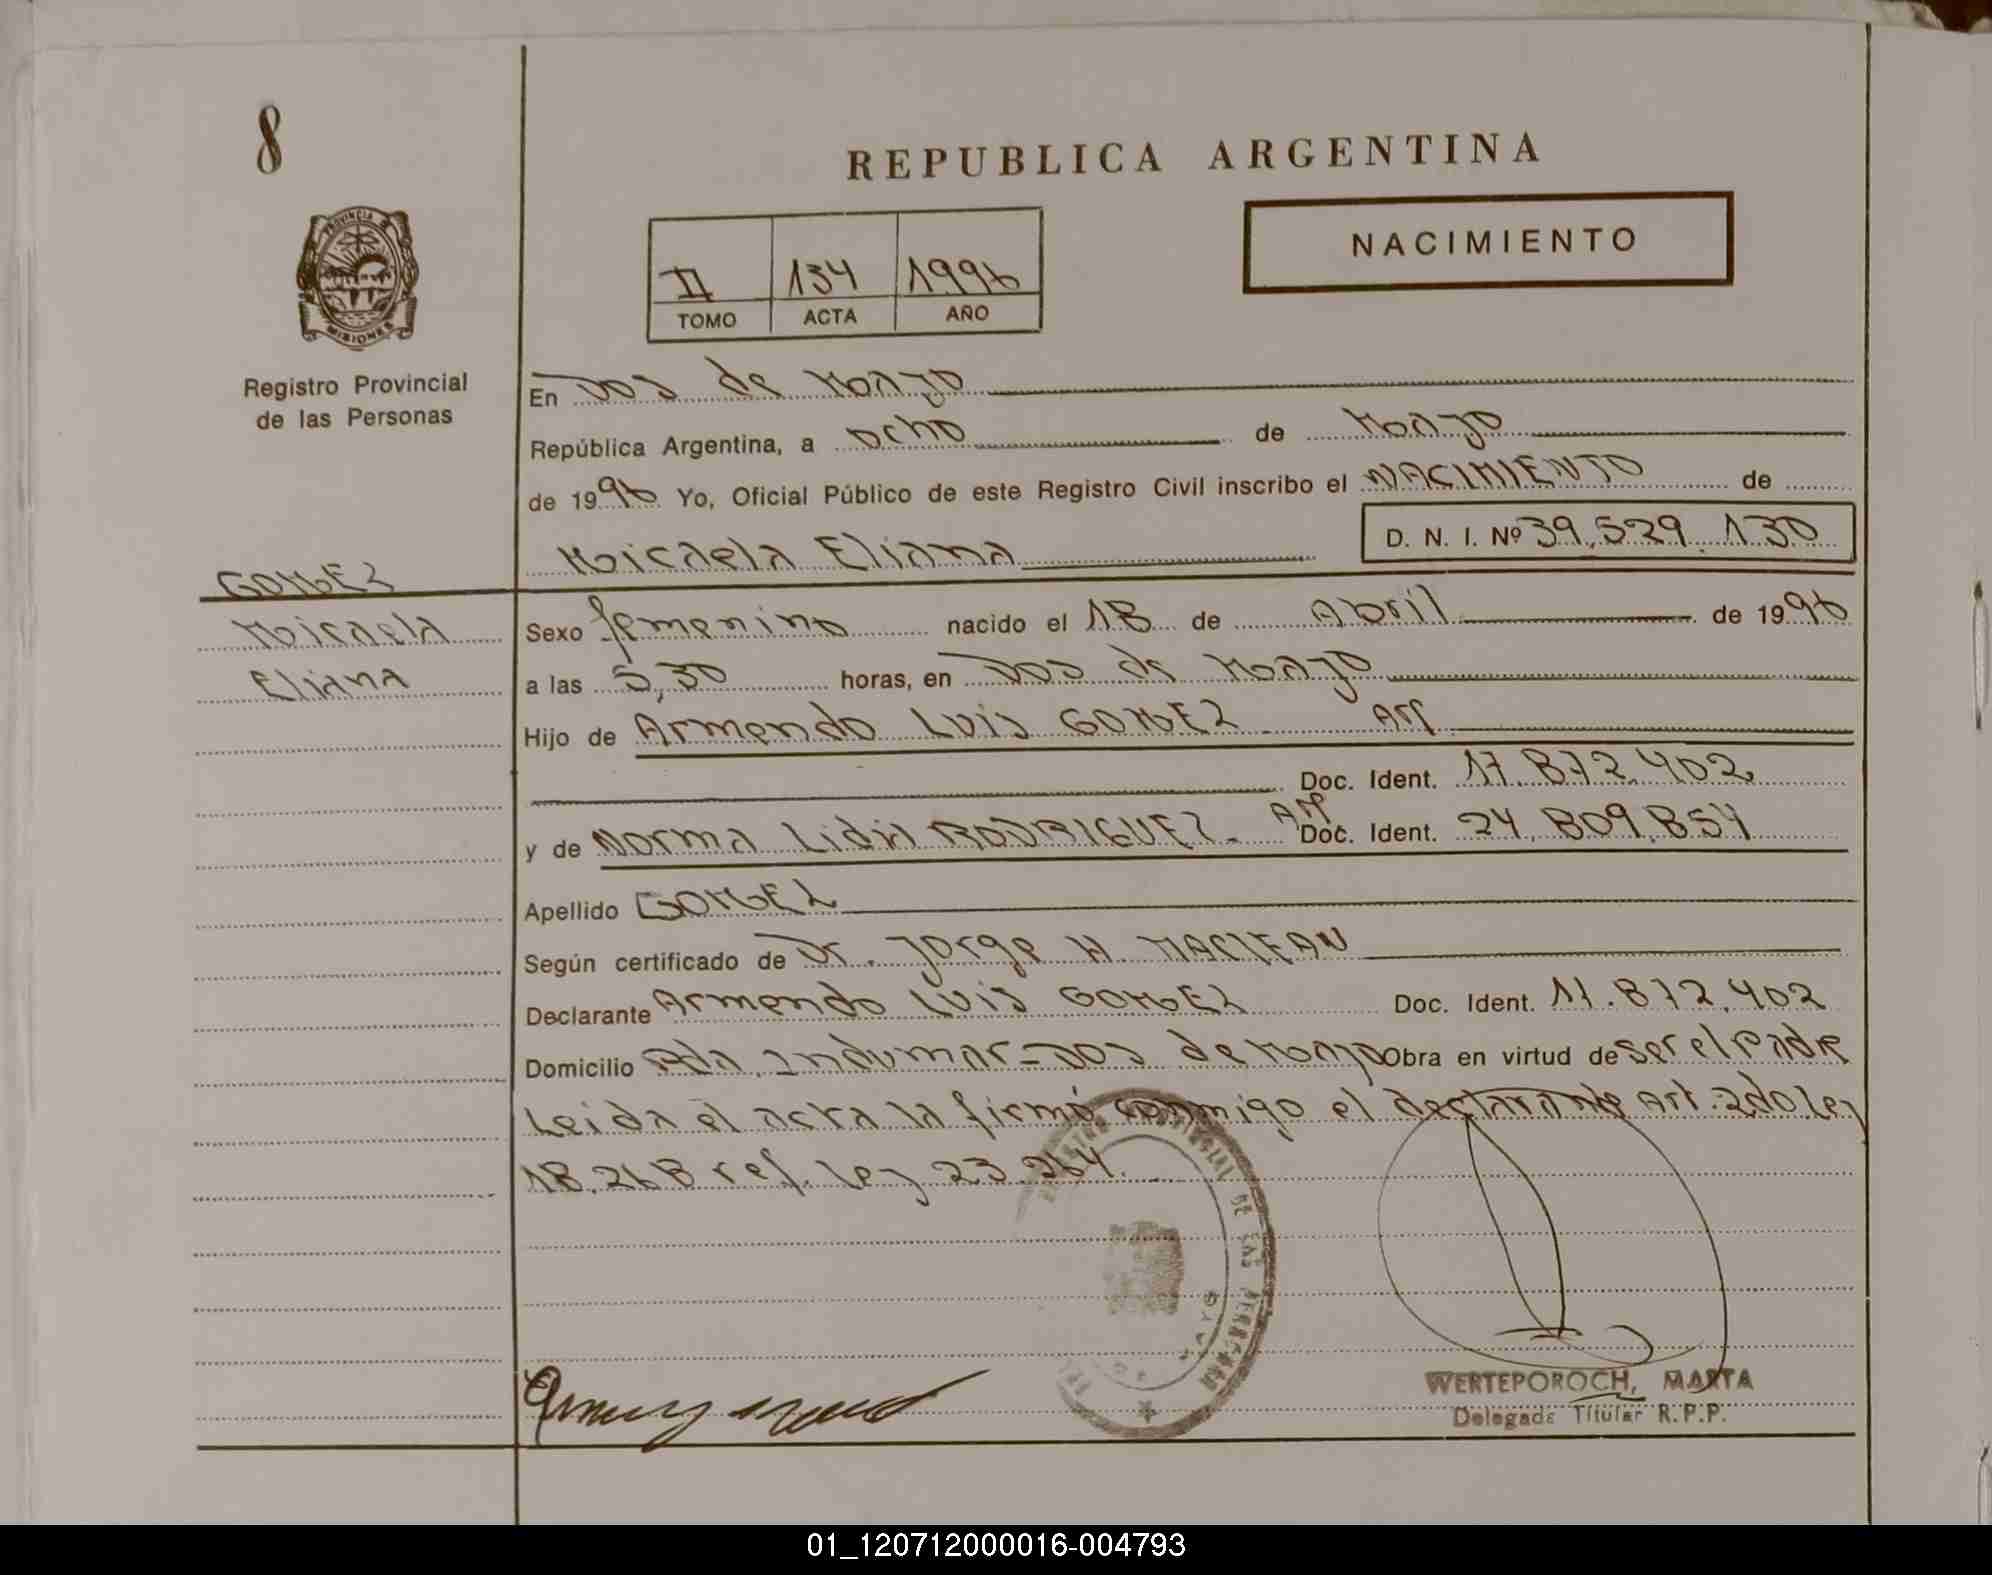 8
REPUBLICA ARGENTINA
NACIMIENTO
II 134 1996
TOMO ACTA AÑO
PROVINCIA DE
MISIONES
Registro Provincial
de las Personas
En Dos de Mayo
República Argentina, a ocho de Mayo
de 1996 Yo, Oficial Público de este Registro Civil inscribo el NACIMIENTO de
Micaela Eliana D. N. I. Nº 39.529.130
GOMEZ
Micaela
Eliana
Sexo femenino nacido el 18 de Abril de 1996
a las 5,30 horas, en Dos de Mayo
Hijo de Armando Luis GOMEZ Arg
Doc. Ident. 17.872.402
y de Norma Lidia RODRIGUEZ Arg Doc. Ident. 24.809.854
Apellido GOMEZ
Según certificado de Dr. Jorge H. MACLEAN
Declarante Armando Luis GOMEZ Doc. Ident. 17.872.402
Domicilio Pda. Indumar-Dos de Mayo Obra en virtud de ser el padre
Leida el acta la firmó conmigo el declarante Art. 2do Ley
18.268 ref. ley 23.264.
WERTEPOROCH, MARTA
Delegada Titular R.P.P.
01_120712000016-004793